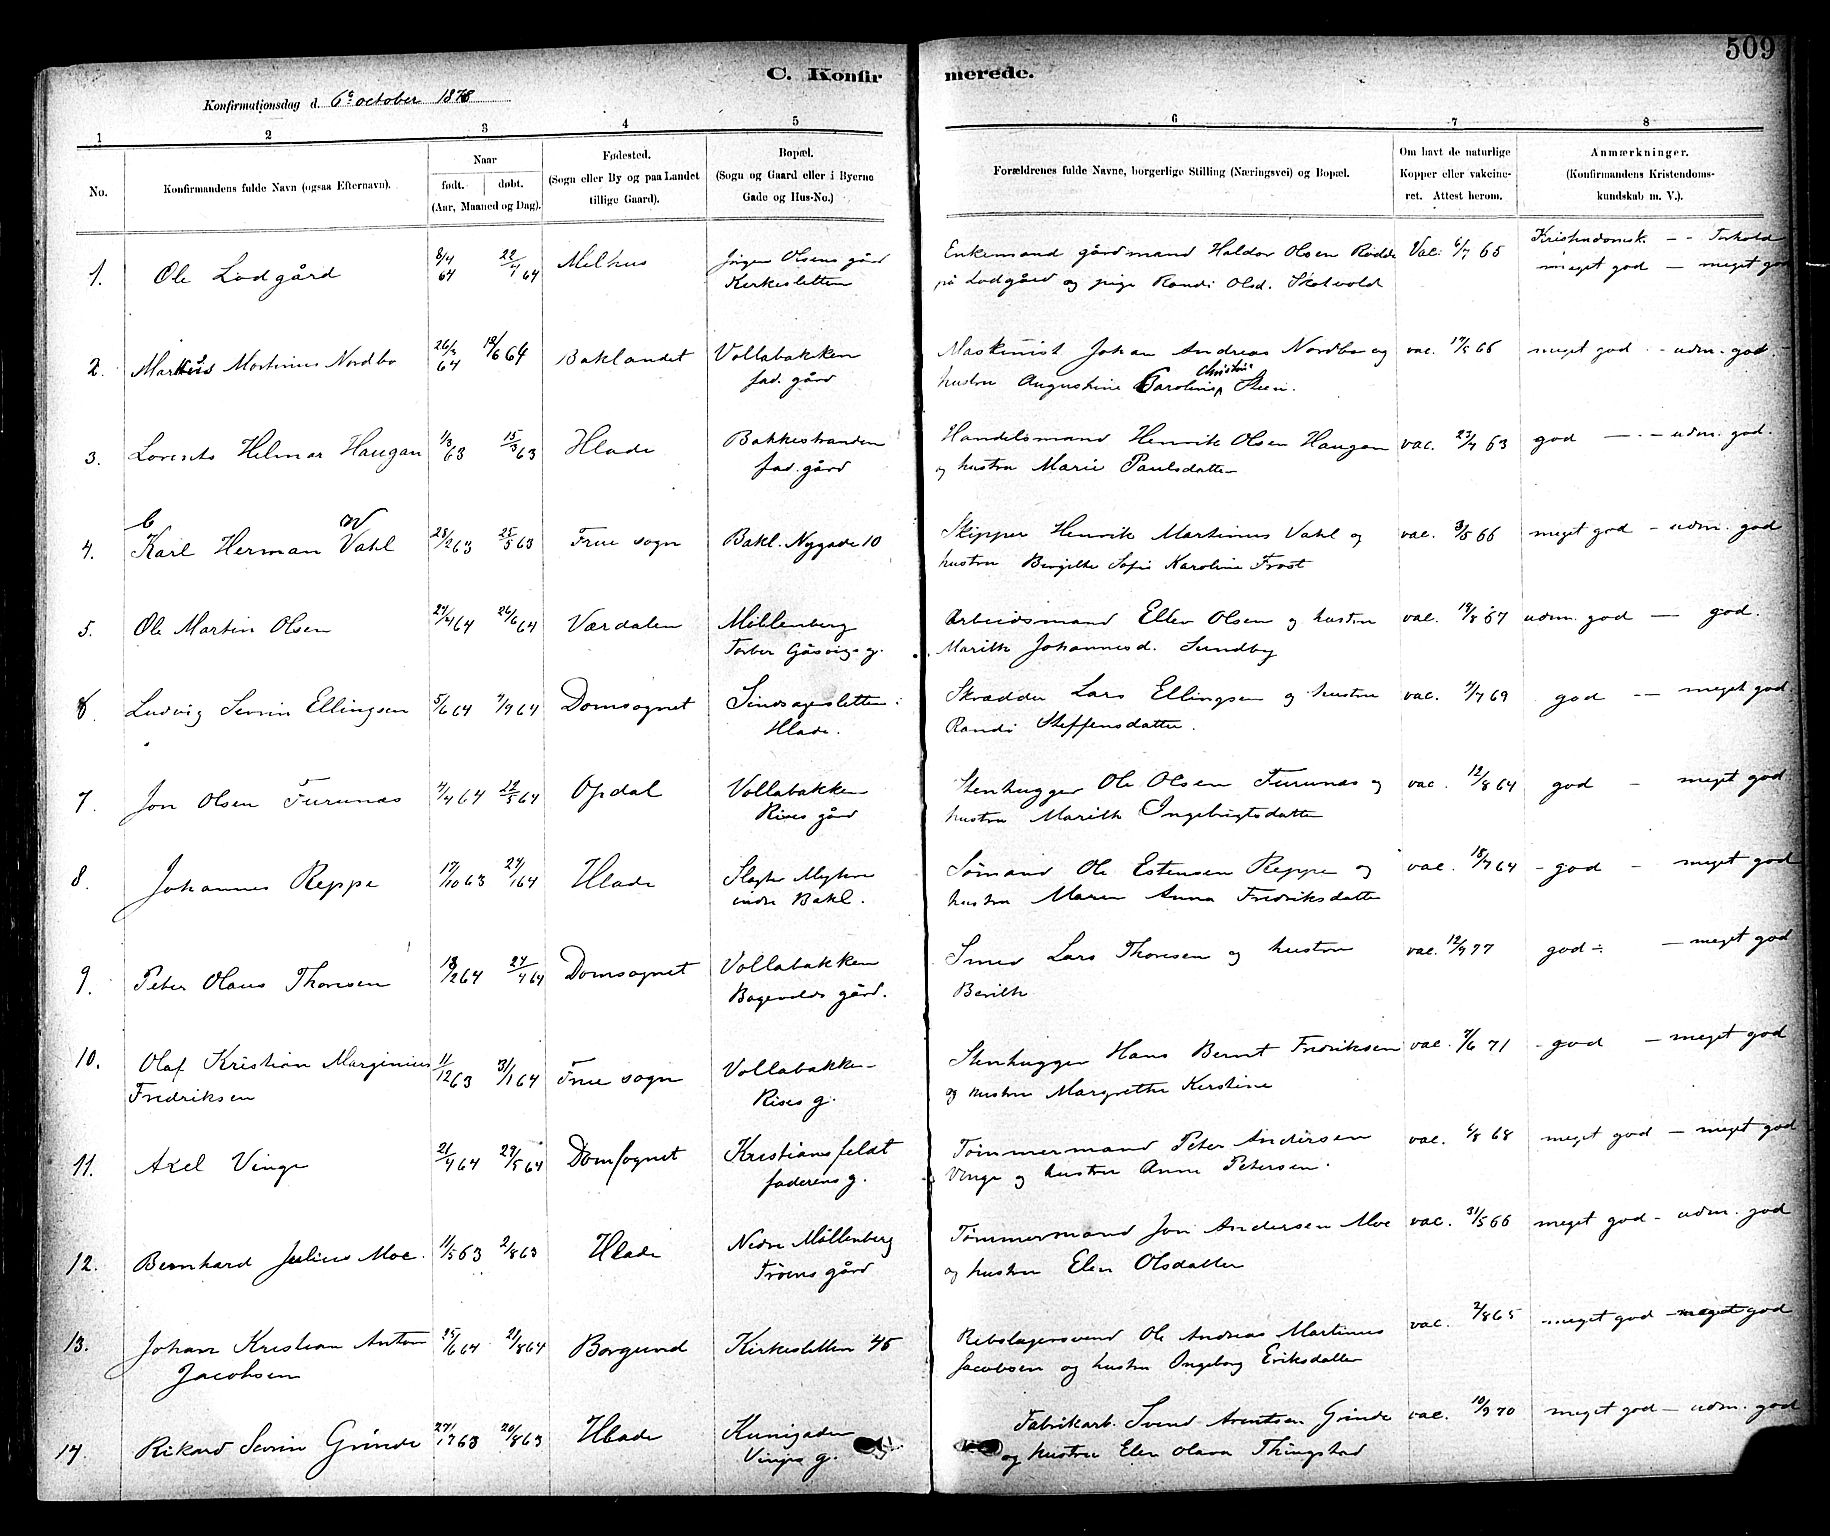 509
C. Konfirmerede.
Konfirmationsdag d. 6e october 1878
1 2 3 4 5 6 7 8
No. Konfirmandens fulde Navn (ogsaa Efternavn). Naar født. døbt. (Aar, Maaned og Dag). Fødested. (Sogn eller By og paa Landet tillige Gaard). Bopæl. (Sogn og Gaard eller i Byerne Gade og Hus-No.) Forældrenes fulde Navne, borgerlige Stilling (Næringsvei) og Bopæl. Om havt de naturlige Kopper eller vakcineret. Attest herom. Anmærkninger. (Konfirmandens Kristendomskundskab m. V.).
1. Ole Lodgård 8/4 64 22/4 64 Melhus Jørgen Olsens gård Enkemand gårdmand Haldor Olsen Rødde Vac. 6/7 65 Kristendomsk. - - Forhold
Kerkesletten på Lodgård og pige Randi Olsd. Skotvold meget god - meget god
2. Markus Martinus Nordbo 26/3 64 12/6 64 Baklandet Vollabakken Maskinist Johan Andreas Nordbo og vac. 17/9 66 meget god - udm. god
fad. gård hustru Augustine Caroline Christine Steen.
3. Lorents Helmar Haugan 1/3 63 15/3 63 Hlade Bakkestranden Handelsmand Henrik Olsen Haugan vac. 23/7 63 god - udm. god.
fad. gård og hustru Marie Paulsdatter
4. C Karl Herman W Vahl 28/2 63 25/5 63 Frue sogn Bakl. Nygade 10 Skipper Henrik Martinus Vahl og vac. 3/5 66 meget god - udm. god
hustru Bergitte Sofie Karoline Frost
5. Ole Martin Olsen 27/4 64 26/6 64 Værdalen Möllenberg Arbeidsmand Ellev Olsen og hustru vac. 19/8 67 udm. god - god.
Torber Gåsvigs g. Marith Johannesd. Sundby
6. Ludvig Sevrin Ellingsen 5/6 64 4/9 64 Domsognet Sindsagersletten Skrædder Lars Ellingsen og hustru vac. 4/7 69 god - meget god
Hlade. Randi Steffensdatter.
7. Jon Olsen Furunæs 4/4 64 22/5 64 Opdal Vollabakken Stenhugger Ole Olsen Furunæs og vac. 12/8 64 god - meget god
Rises gård hustru Marith Ingebrigtsdatter
8. Johannes Reppe 17/10 63 24/1 64 Hlade Slagter Myhre Sømand Ole Estensen Reppe og vac. 18/7 64 - god - meget god
indre Bakl. hustru Maren Anna Fredriksdatter
9. Peter Olaus Thonsen 18/2 64 24/4 64 Domsognet Vollabakken Smed Lars Thonsen og hustru vac. 12/9 77 god - meget god
Bogevolds gård. Berith
10. Olaf Kristian Marginius 11/12 63 31/1 64 Frue sogn Vollabakke- Stenhugger Hans Bernt Fredriksen vac. 7/6 71 - god - meget god
Fredriksen Rises g. og hustru Margrethe Kerstine
11. Axel Vinge 21/4 64 29/5 64 Domsognet Kristiansfeldt Tømmermand Peter Andersen vac. 6/8 68 meget god - meget god
faderens g. Vinge og hustru Anne Petersen.
12. Bernhard Julius Moe. 11/5 63 2/8 63 Hlade Nedre Möllenberg Tømmermand Jon Andersen Moe vac. 31/5 66 meget god - udm. god
Trøens gård og hustru Elen Olsdatter
13. Johan Kristian Anton 25/6 64 21/8 64 Borgund Kirkesletten 45 Rebslagersvend Ole Andreas Martinus vac. 2/8 65 meget god - meget god
Jacobsen Jacobsen og hustru Ingeborg Eriksdatter
14. Rikard Sevrin Grinde 27/7 63 20/8 63 Hlade Kunigaden Fabrikarb. Svend Arentsen Grinde vac. 10/9 70 meget god - udm. god
Vinges g. og hustru Elen Olava Thingstad